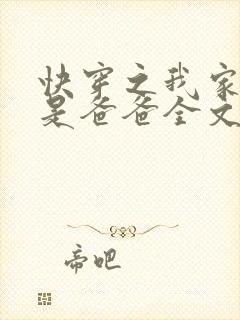 快穿之我家
是爸爸全文
帝吧